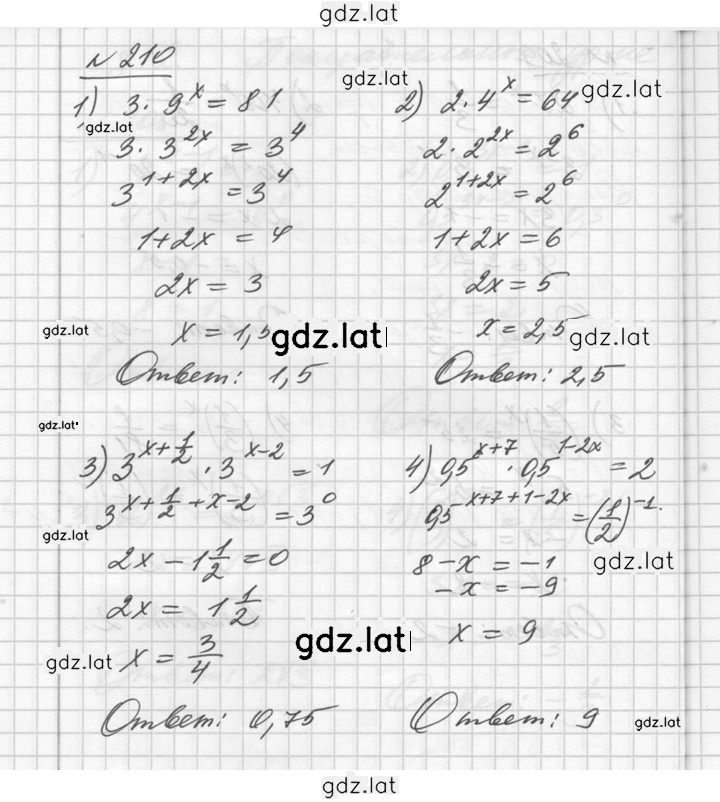 gdz.lat
№ 210
gdz.lat
gdz.lat
1) 3·9^x = 81
gdz.lat
3·3^{2x} = 3^4
3^{1+2x} = 3^4
1+2x = 4
2x = 3
gdz.lat
x = 1,5
gdz.lat
Ответ: 1,5
2) 2·4^x = 64
2·2^{2x} = 2^6
2^{1+2x} = 2^6
1+2x = 6
2x = 5
x = 2,5
gdz.lat
Ответ: 2,5
gdz.lat
3) 3^{x+\frac{1}{2}} · 3^{x-2} = 1
3^{x+\frac{1}{2}+x-2} = 3^0
gdz.lat
2x - 1\frac{1}{2} = 0
2x = 1\frac{1}{2}
gdz.lat
gdz.lat
x = \frac{3}{4}
Ответ: 0,75
4) 0,5^{x+7} · 0,5^{1-2x} = 2
0,5^{x+7+1-2x} = (\frac{1}{2})^{-1}.
gdz.lat
8-x = -1
-x = -9
x = 9
Ответ: 9
gdz.lat
gdz.lat